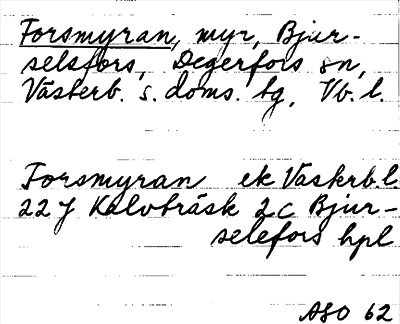 Forsmyran, myr, Bjur-
selsfors, Degerfors sn,
Västerb. s. doms. tg, Vb. l.
Forsmyran ek Västerb. l.
22 J Kalvträsk 2 c Bjur-
selefors hpl
ASO 62